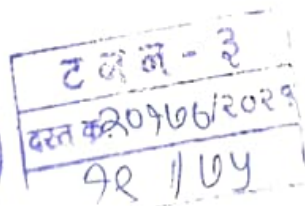 ट न न - ३
दस्त क्र२०१७७/२०२१
१९ / ७५